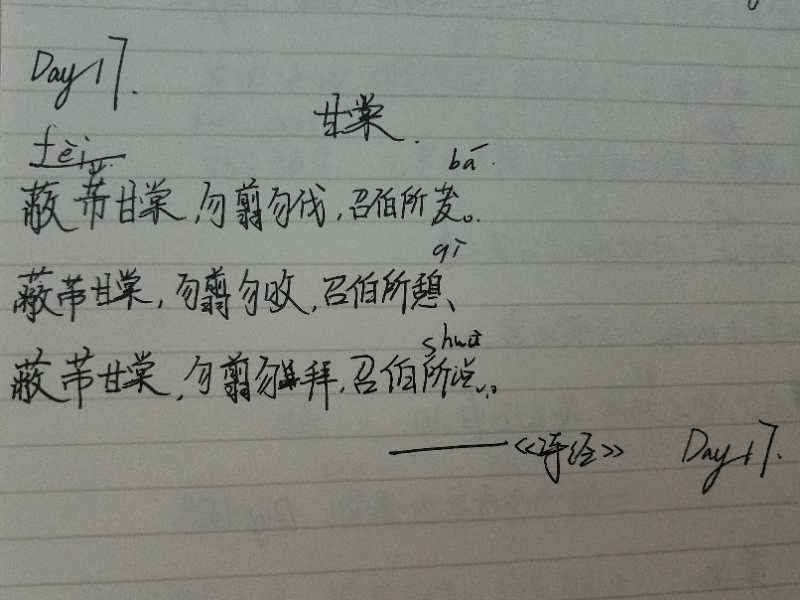 Day 17.
甘棠.
fèi
bá
蔽芾甘棠,勿翦勿伐,召伯所茇。
qì
蔽芾甘棠,勿翦勿败,召伯所憩、
shuì
蔽芾甘棠,勿翦勿拜,召伯所说。
——《诗经》 Day 17.